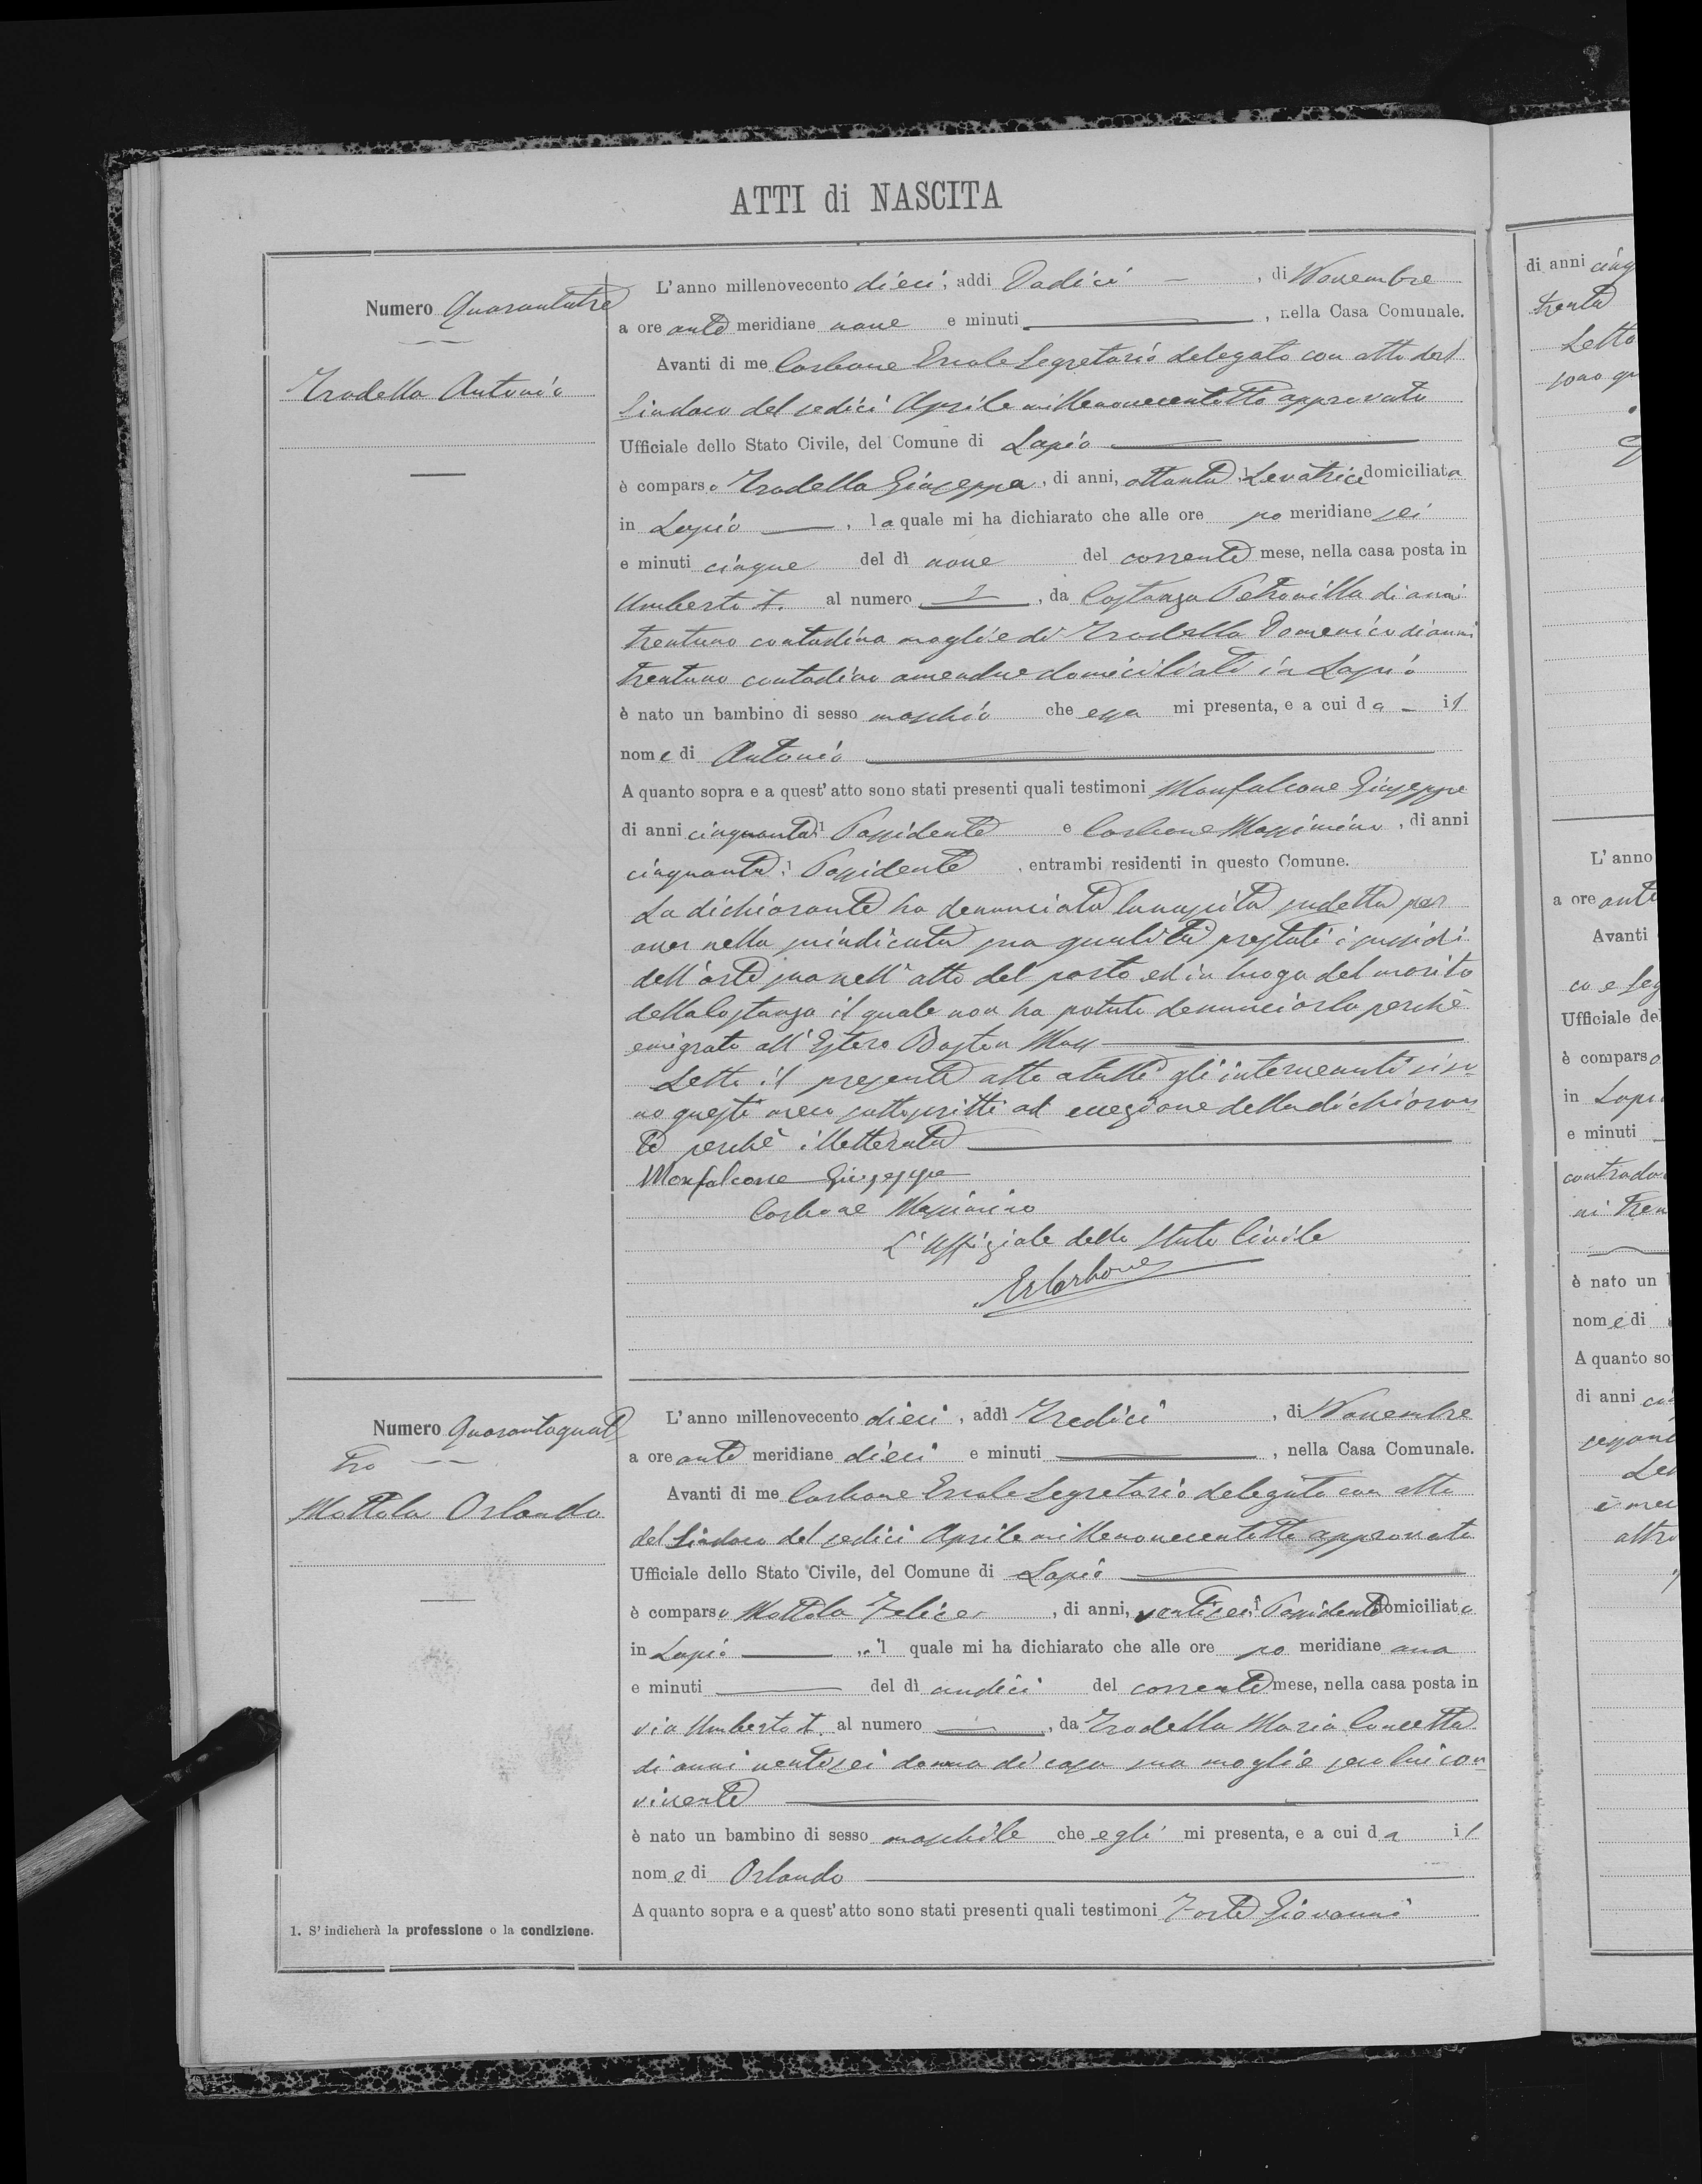 ATTI di NASCITA
Numero Quarantatre
Trodella Antonio
L'anno millenovecento dieci, addì Dodici — , di Novembre
a ore ante meridiane nove e minuti , nella Casa Comunale.
Avanti di me Carbone Ercole Segretario delegato con atto del
Sindaco del sedici Aprile millenovecentotto approvato
Ufficiale dello Stato Civile, del Comune di Lapio
è comparsa Trodella Giuseppa, di anni, ottanta, Levatrice domiciliata
in Lapio , la quale mi ha dichiarato che alle ore po meridiane sei
e minuti cinque del dì nove del corrente mese, nella casa posta in
Umberto I. al numero , da Costanza Petronilla di anni
trentuno contadina moglie di Trodella Domenico di anni
trentuno contadino amendue domiciliati in Lapio
è nato un bambino di sesso maschio che essa mi presenta, e a cui da — il
nome di Antonio
A quanto sopra e a quest'atto sono stati presenti quali testimoni Monfalcone Giuseppe
di anni cinquanta1 Possidente e Carbone Massimino, di anni
cinquanta1 Possidente , entrambi residenti in questo Comune.
La dichiarante ha denunciata la nascita sudetta per
aver nella suindicata sua qualità prestati i sussidi
dell'arte sua nell'atto del parto ed in luogo del marito
della Costanza il quale non ha potuto denunciarla perchè
emigrato all'Estero Boston Mass
Letto il presente atto a tutti gli intervenuti si so
no questi meco sottoscritti ad eccezione della dichiaran
te perchè illetterata
Monfalcone Giuseppe
Carbone Massimino
L'Uffiziale dello Stato Civile
E Carbone
Numero Quarantaquat
tro
Mottola Orlando
L'anno millenovecento dieci, addì Tredici , di Novembre
a ore ante meridiane dieci e minuti , nella Casa Comunale.
Avanti di me Carbone Ercole Segretario delegato con atto
del Sindaco del sedici Aprile millenovecentotto approvato
Ufficiale dello Stato Civile, del Comune di Lapio
è comparso Mottola Felice , di anni, ventisei1 Possidente domiciliato
in Lapio , il quale mi ha dichiarato che alle ore po meridiane una
e minuti del dì undici del corrente mese, nella casa posta in
via Umberto I. al numero , da Trodella Maria Concetta
di anni ventisei donna di casa sua moglie seco lui con
vivente
è nato un bambino di sesso maschile che egli mi presenta, e a cui da il
nome di Orlando
A quanto sopra e a quest'atto sono stati presenti quali testimoni Forte Giovanni
1. S'indicherà la professione o la condizione.
di anni cinq
trenta
Letto
sono qu
L'anno
a ore ante
Avanti
co e Seg
Ufficiale de
è comparso
in Lapi
e minuti
contrada
ni tren
è nato un
nome di
A quanto so
di anni
altro